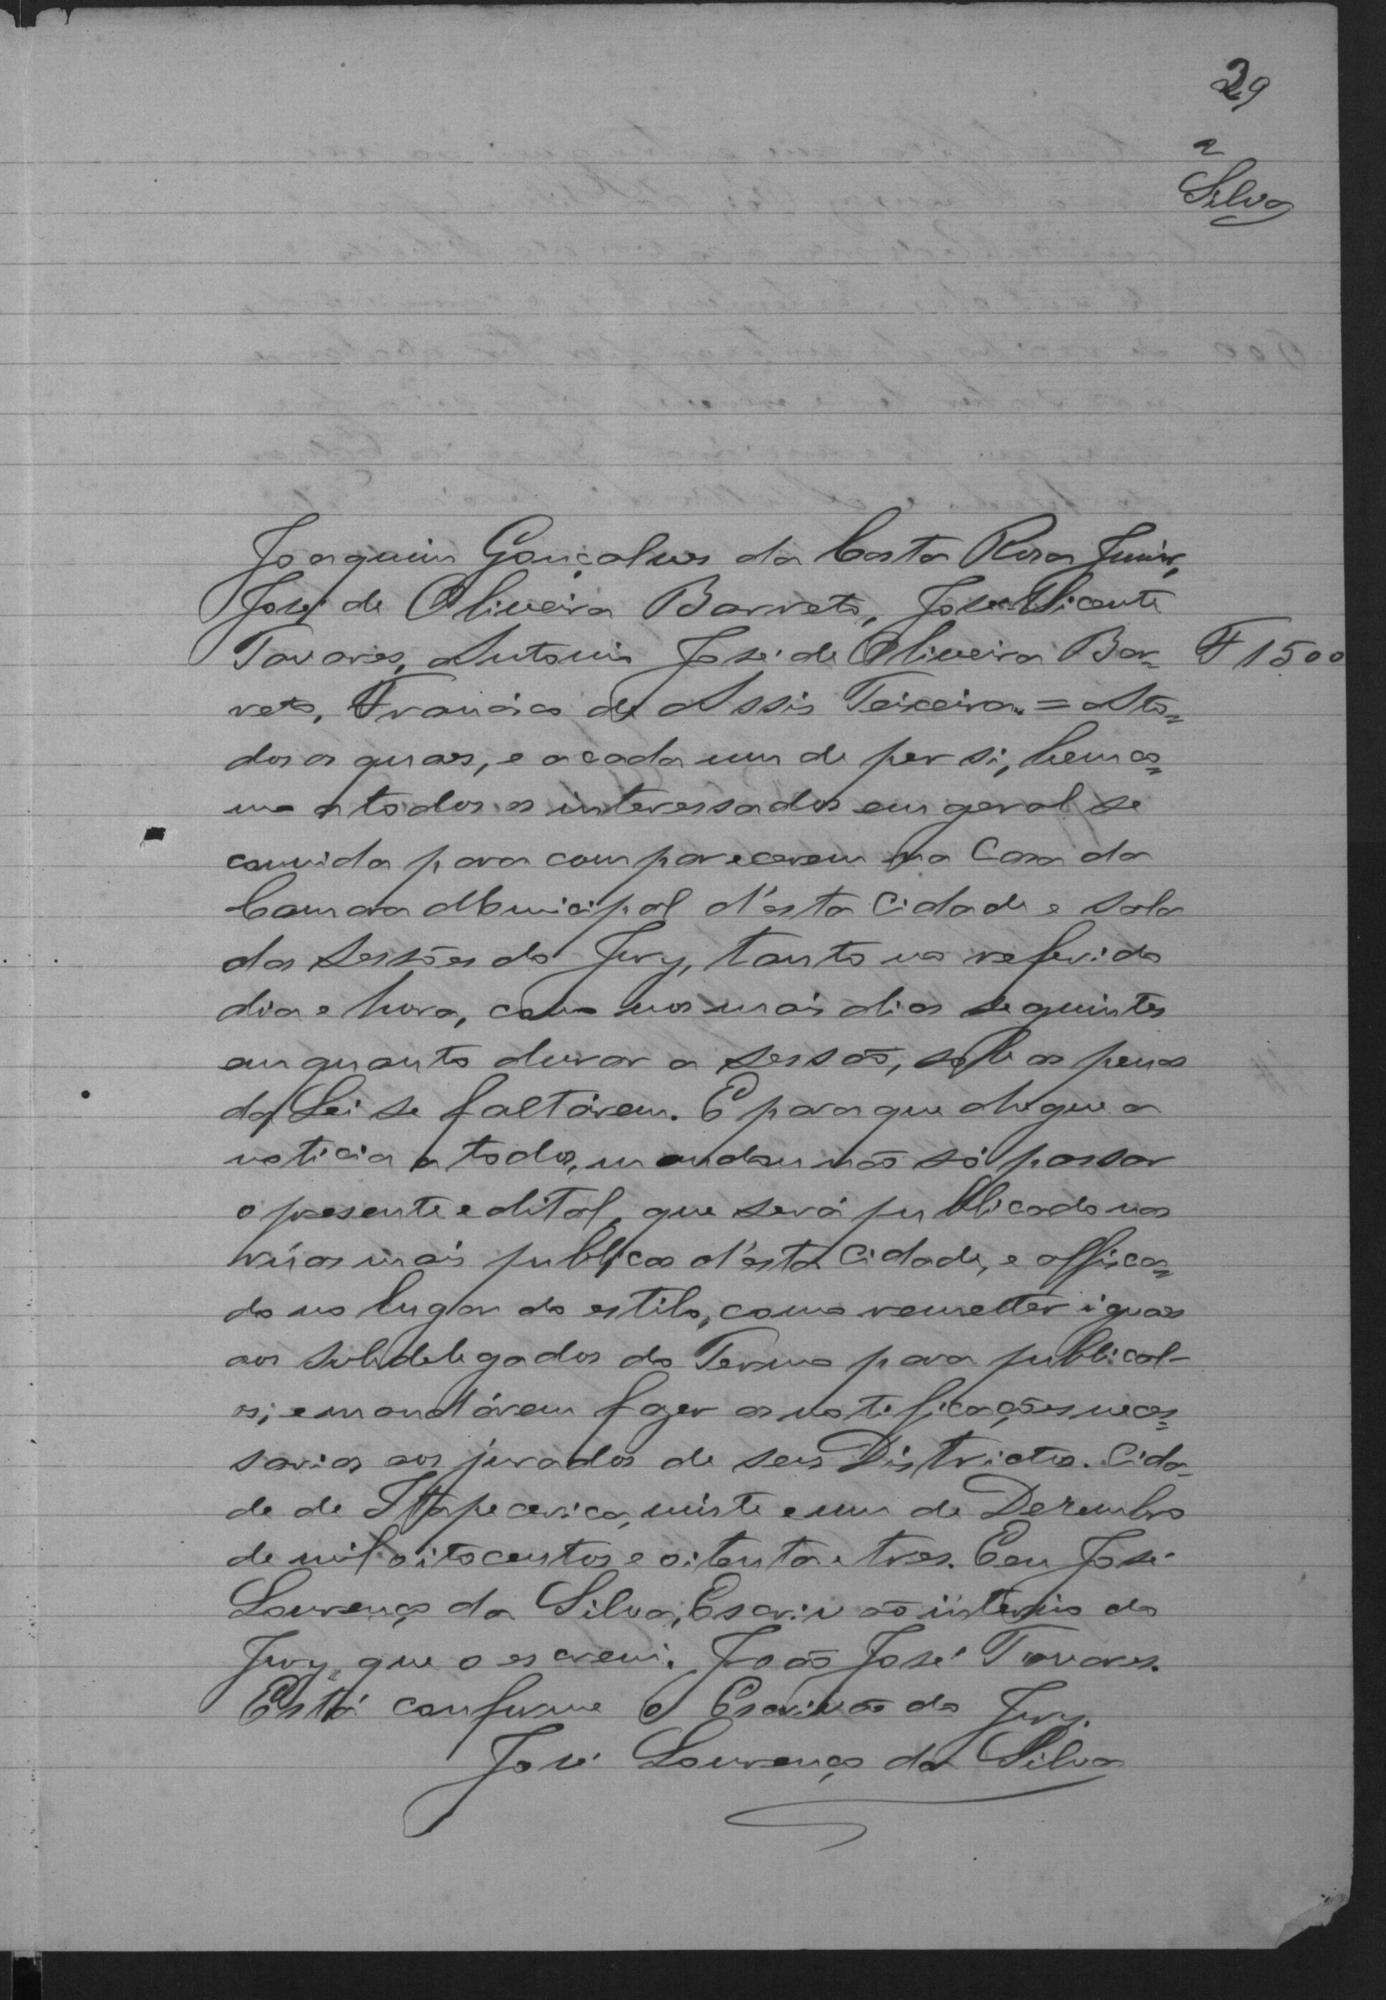 29
Silva
Joaquim Gonçalves da Costa Rosa Junior,
José de Oliveira Barreto, José Vicente
Tavares, Antonio José de Oliveira Bar=
F 1500
reto, Francisco de Assis Teixeira. = A to=
dos os quaes, e a cada um de per si, bem co=
mo a todos os interessados em geral se
convida para comparecerem na Casa da
Camara Municipal d'esta Cidade e sala
das Sessões do Jury, tanto no referido
dia e hora, como nos mais dias seguintes
emquanto durar a sessão, sob as penas
da Lei se faltárem. E para que chegue a
noticia a todos, mandou não só passar
o presente edital, que será publicado nas
rúas mais publicas d'esta Cidade, e affixa=
do no lugar do estilo, como remetter iguaes
aos subdelegados do Termo para publical-
os, e mandárem fazer as notificações neces=
sarias aos jurados de seus Districtos. Cida=
de de Itapecerica, vinte e um de Dezembro
de mil oitocentos e oitenta e tres. Eu José
Lourenço da Silva, Escrivão interino do
Jury, que o escrevi. João José Tavares.
Está conforme O Escrivão do Jury.
José Lourenço da Silva